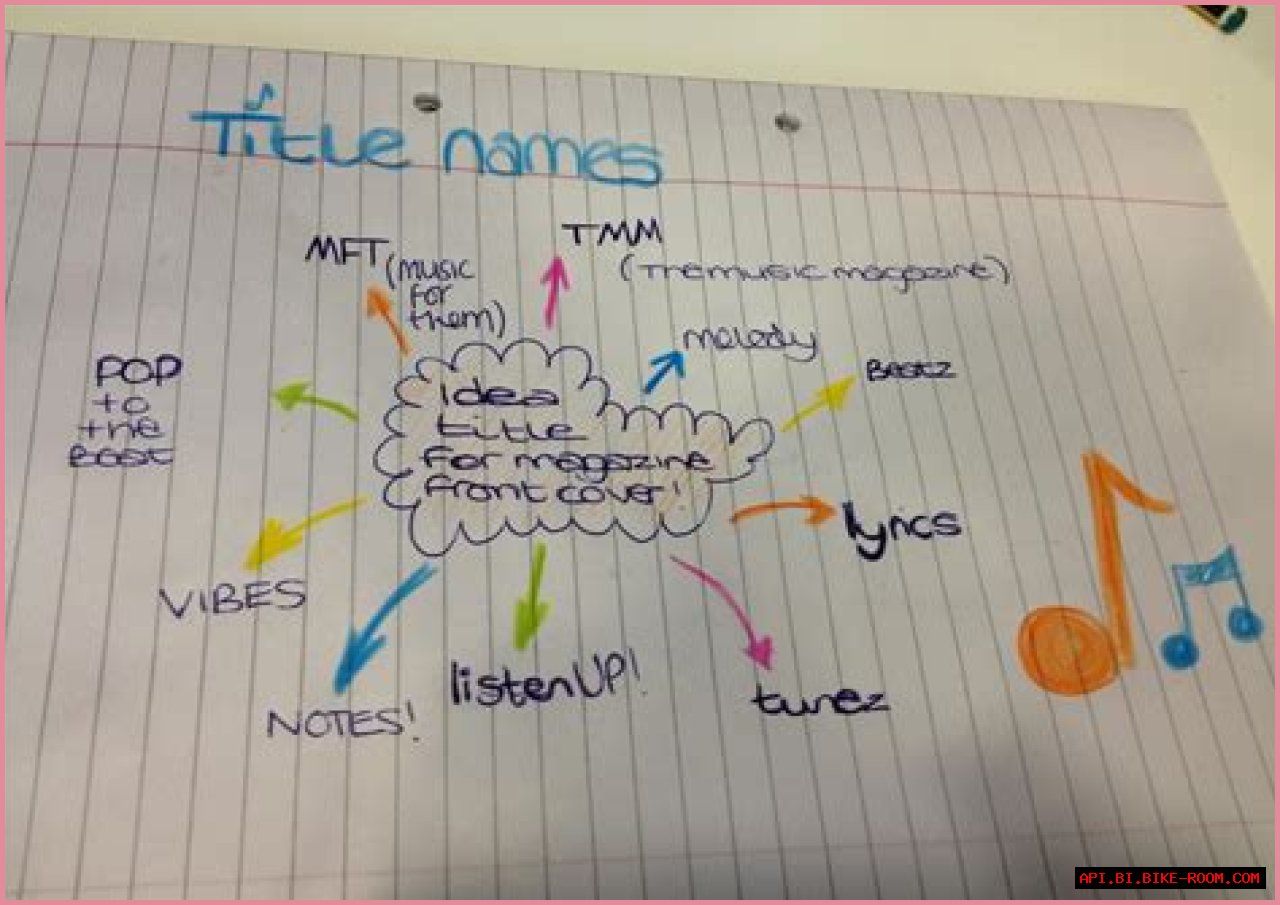 Title names
MFT (music
for
them)
TMM
(The music magazine)
melody
Beatz
POP
to
the
Beat
Idea
title
for magazine
front cover!
lyrics
VIBES
NOTES!
listen UP!
tunez
API.BI.BIKE-ROOM.COM